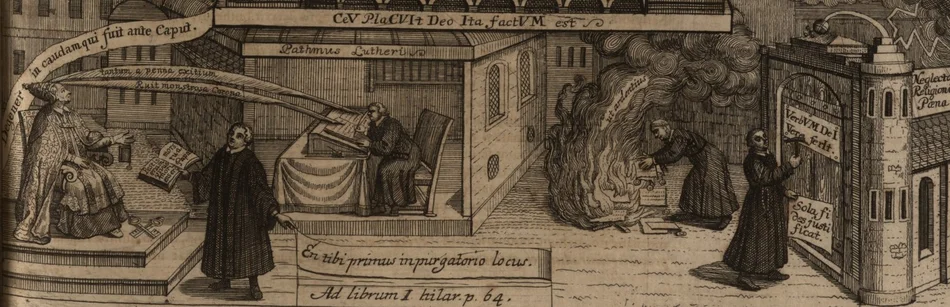 CeV PlaCVIt Deo Ita factVM est
in caudam qui fuit ante Caput.
Pathmus Lutheri
tantum a penna exitium
Ruit monstrosa Corona
sic ardentius
Neglect
Religion
Pœna
VerbVM DeI
Sola fi
des justi
ficat.
En tibi primus in purgatorio locus.
Ad librum I hilar. p. 64.